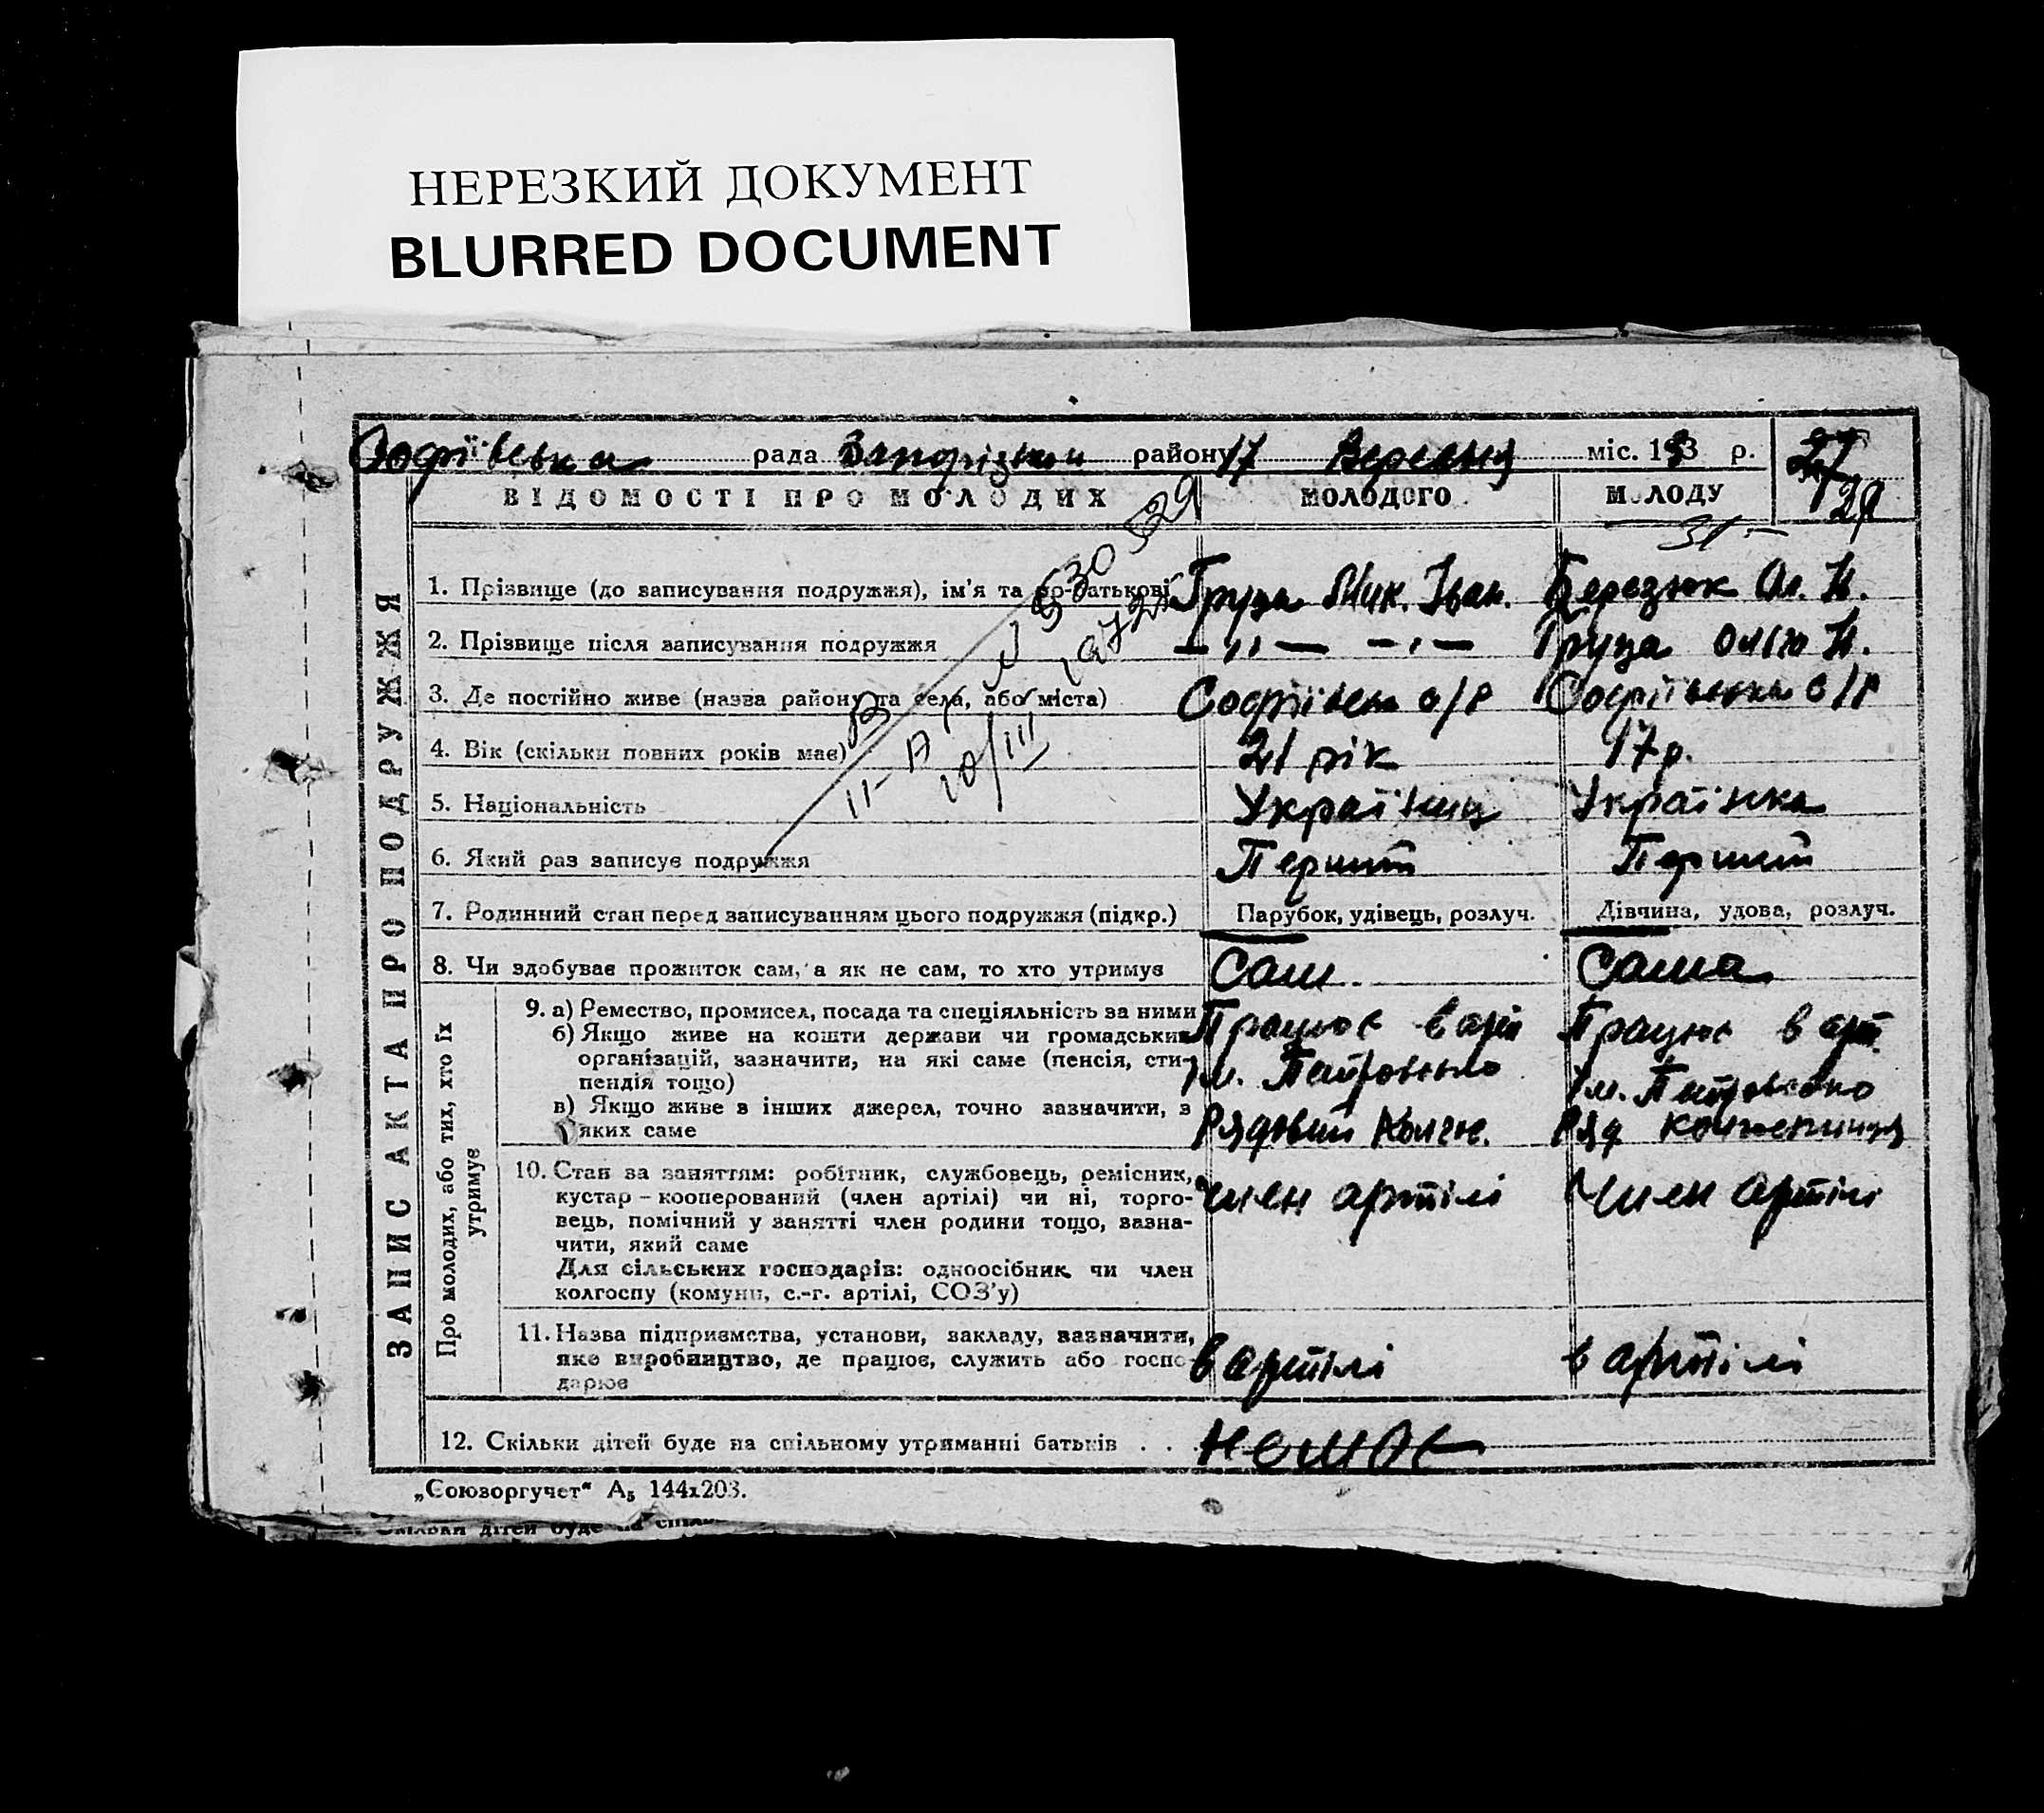 НЕРЕЗКИЙ ДОКУМЕНТ
BLURRED DOCUMENT
Софіївська рада Запорізьки району 17 Вересня міс. 193 р.
27
29
ВІДОМОСТІ ПРО МОЛОДИХ МОЛОДОГО МОЛОДУ
31 -
ЗАПИС АКТА ПРО ПОДРУЖЖЯ
1. Прізвище (до записування подружжя), ім'я та по-батькові Груза Мик. Іван. Березюк Ол. Н.
2. Прізвище після записування подружжя — „ — — „ — Груза Ольга Н.
3. Де постійно живе (назва району та села, або міста) Софіївська с/р Софіївська с/р
4. Вік (скільки повних років має) 21 рік 17 р.
5. Національність Українець Українка
6. Який раз записує подружжя Перший Перший
530529
1972
10/III
7. Родинний стан перед записуванням цього подружжя (підкр.) Парубок, удівець, розлуч. Дівчина, удова, розлуч.
8. Чи здобуває прожиток сам, а як не сам, то хто утримує Сам Сама
Про молодих, або тих, хто їх утримує
9. а) Ремество, промисел, посада та спеціяльність за ними Працює в арт Працює в арт.
б) Якщо живе на кошти держави чи громадських
організацій, зазначити, на які саме (пенсія, сти- ім. Петровського ім. Петровсько
пендія тощо)
в) Якщо живе з інших джерел, точно зазначити, з Рядовий Колгос. Ряд колгоспниця
яких саме
10. Стан за заняттям: робітник, службовець, ремісник, член артілі Член артілі
кустар – кооперований (член артілі) чи ні, торго-
вець, помічний у занятті член родини тощо, зазна-
чити, який саме
Для сільських господарів: одноосібник чи член
колгоспу (комуни, с.-г. артілі, СОЗ'у)
11. Назва підприємства, установи, закладу, зазначити, в артілі в артілі
яке виробництво, де працює, служить або госпо-
дарює
12. Скільки дітей буде на спільному утриманні батьків . . . немає
„Союзоргучет" А5 144х203.
Скільки дітей буде на спіль